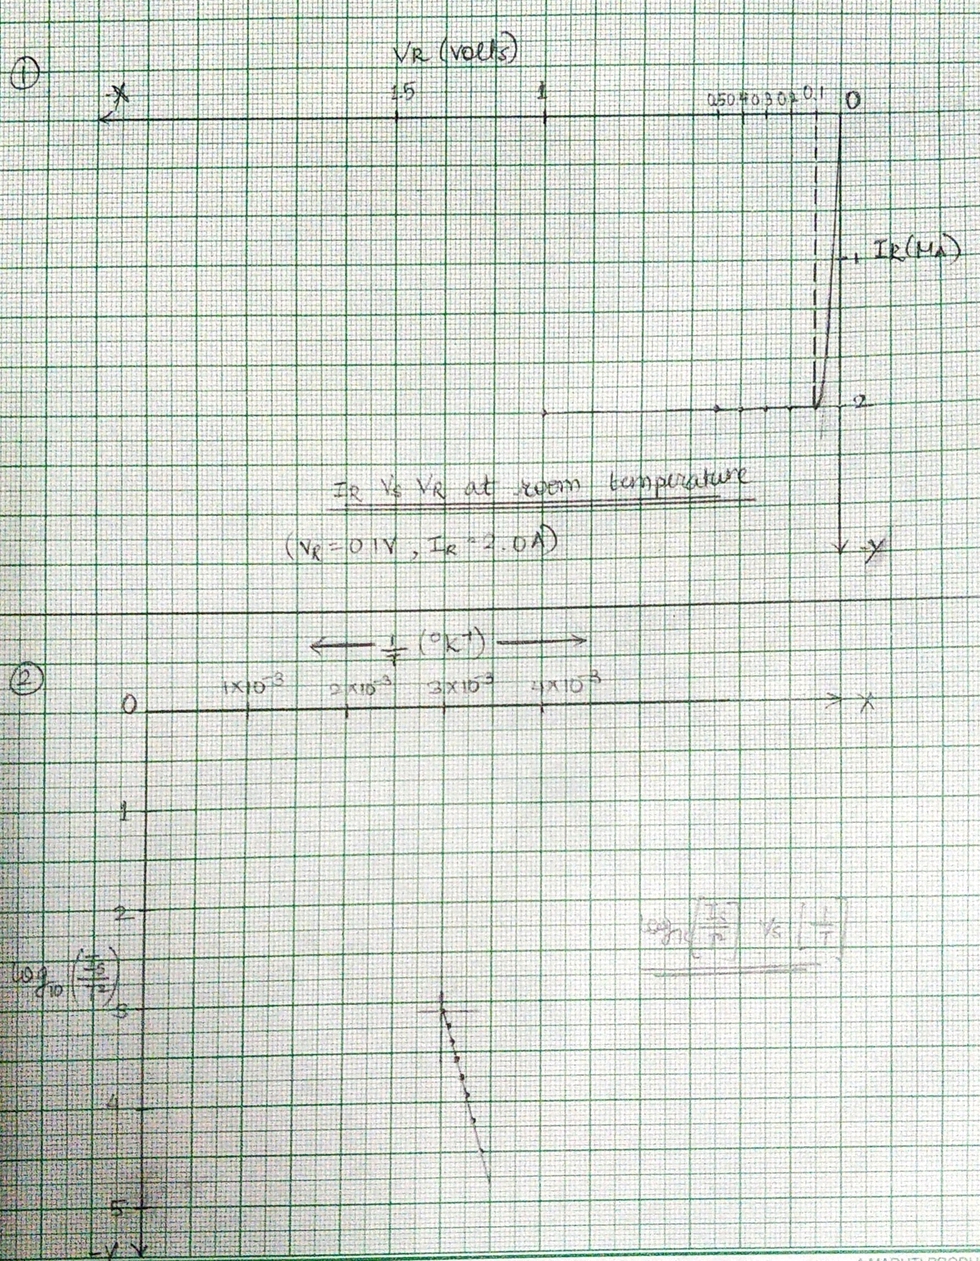 ①
VR (volts)
-X
1.5 1 0.5 0.4 0.3 0.2 0.1 0
1 IR(μA)
2
IR Vs VR at room temperature
(VR = 0.1V, IR = 2.0A)
-Y
②
1/T (°K⁻¹)
1×10⁻³ 2×10⁻³ 3×10⁻³ 4×10⁻³
0 X
1
2
log₁₀[Is/T²] Vs [1/T]
log₁₀(Is/T²)
3
4
5
-Y